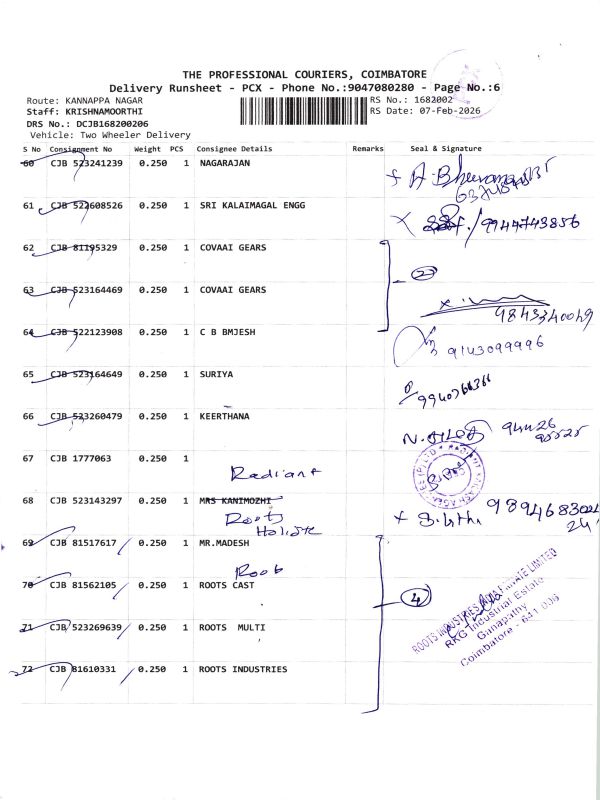 THE PROFESSIONAL COURIERS, COIMBATORE
Delivery Runsheet - PCX - Phone No.:9047080280 - Page No.:6
Route: KANNAPPA NAGAR RS No.: 1682002
Staff: KRISHNAMOORTHI RS Date: 07-Feb-2026
DRS No.: DCJB168200206
Vehicle: Two Wheeler Delivery
S No Consignment No Weight PCS Consignee Details Remarks Seal & Signature
60 CJB 523241239 0.250 1 NAGARAJAN
61 CJB 522608526 0.250 1 SRI KALAIMAGAL ENGG 9944743856
62 CJB 81195329 0.250 1 COVAAI GEARS
2
63 CJB 523164469 0.250 1 COVAAI GEARS
9843340049
64 CJB 522123908 0.250 1 C B BMJESH
9143099996
65 CJB 523164649 0.250 1 SURIYA
9940766366
66 CJB 523260479 0.250 1 KEERTHANA
94426
67 CJB 1777063 0.250 1
Radiant
68 CJB 523143297 0.250 1 MRS KANIMOZHI
Roots
69 CJB 81517617 0.250 1 MR.MADESH
Roots
70 CJB 81562105 0.250 1 ROOTS CAST
4
ROOTS INDUSTRIES INDIA PRIVATE LIMITED
RKG Industrial Estate
Ganapathy
Coimbatore - 641 006
71 CJB 523269639 0.250 1 ROOTS MULTI
72 CJB 81610331 0.250 1 ROOTS INDUSTRIES